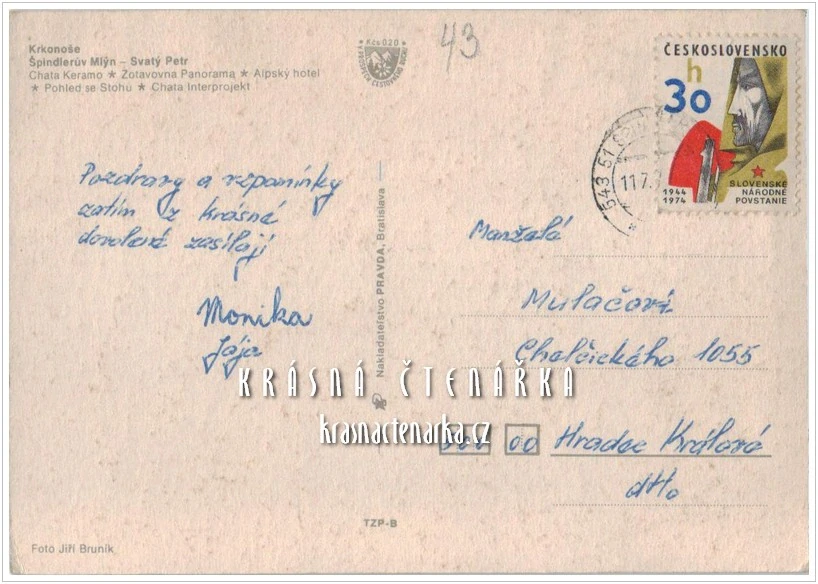 Krkonoše
Špindlerův Mlýn – Svatý Petr
Chata Keramo ★ Zotavovna Panorama ★ Alpský hotel
★ Pohled se Stohu ★ Chata Interprojekt
Kčs 0,20
43
ČESKOSLOVENSKO
h
30
1944
1974
SLOVENSKÉ
NÁRODNÉ
POVSTANIE
543 51
11.7.
Pozdravy a vzpomínky
zatím z krásné
dovolené zasílají
Monika
Jája
Nakladateľstvo PRAVDA, Bratislava
Manželé
Mulačovi
Chelčického 1055
00 Hradec Králové
KRÁSNÁ ČTENÁŘKA
krasnactenarka.cz
TZP-B
Foto Jiří Bruník